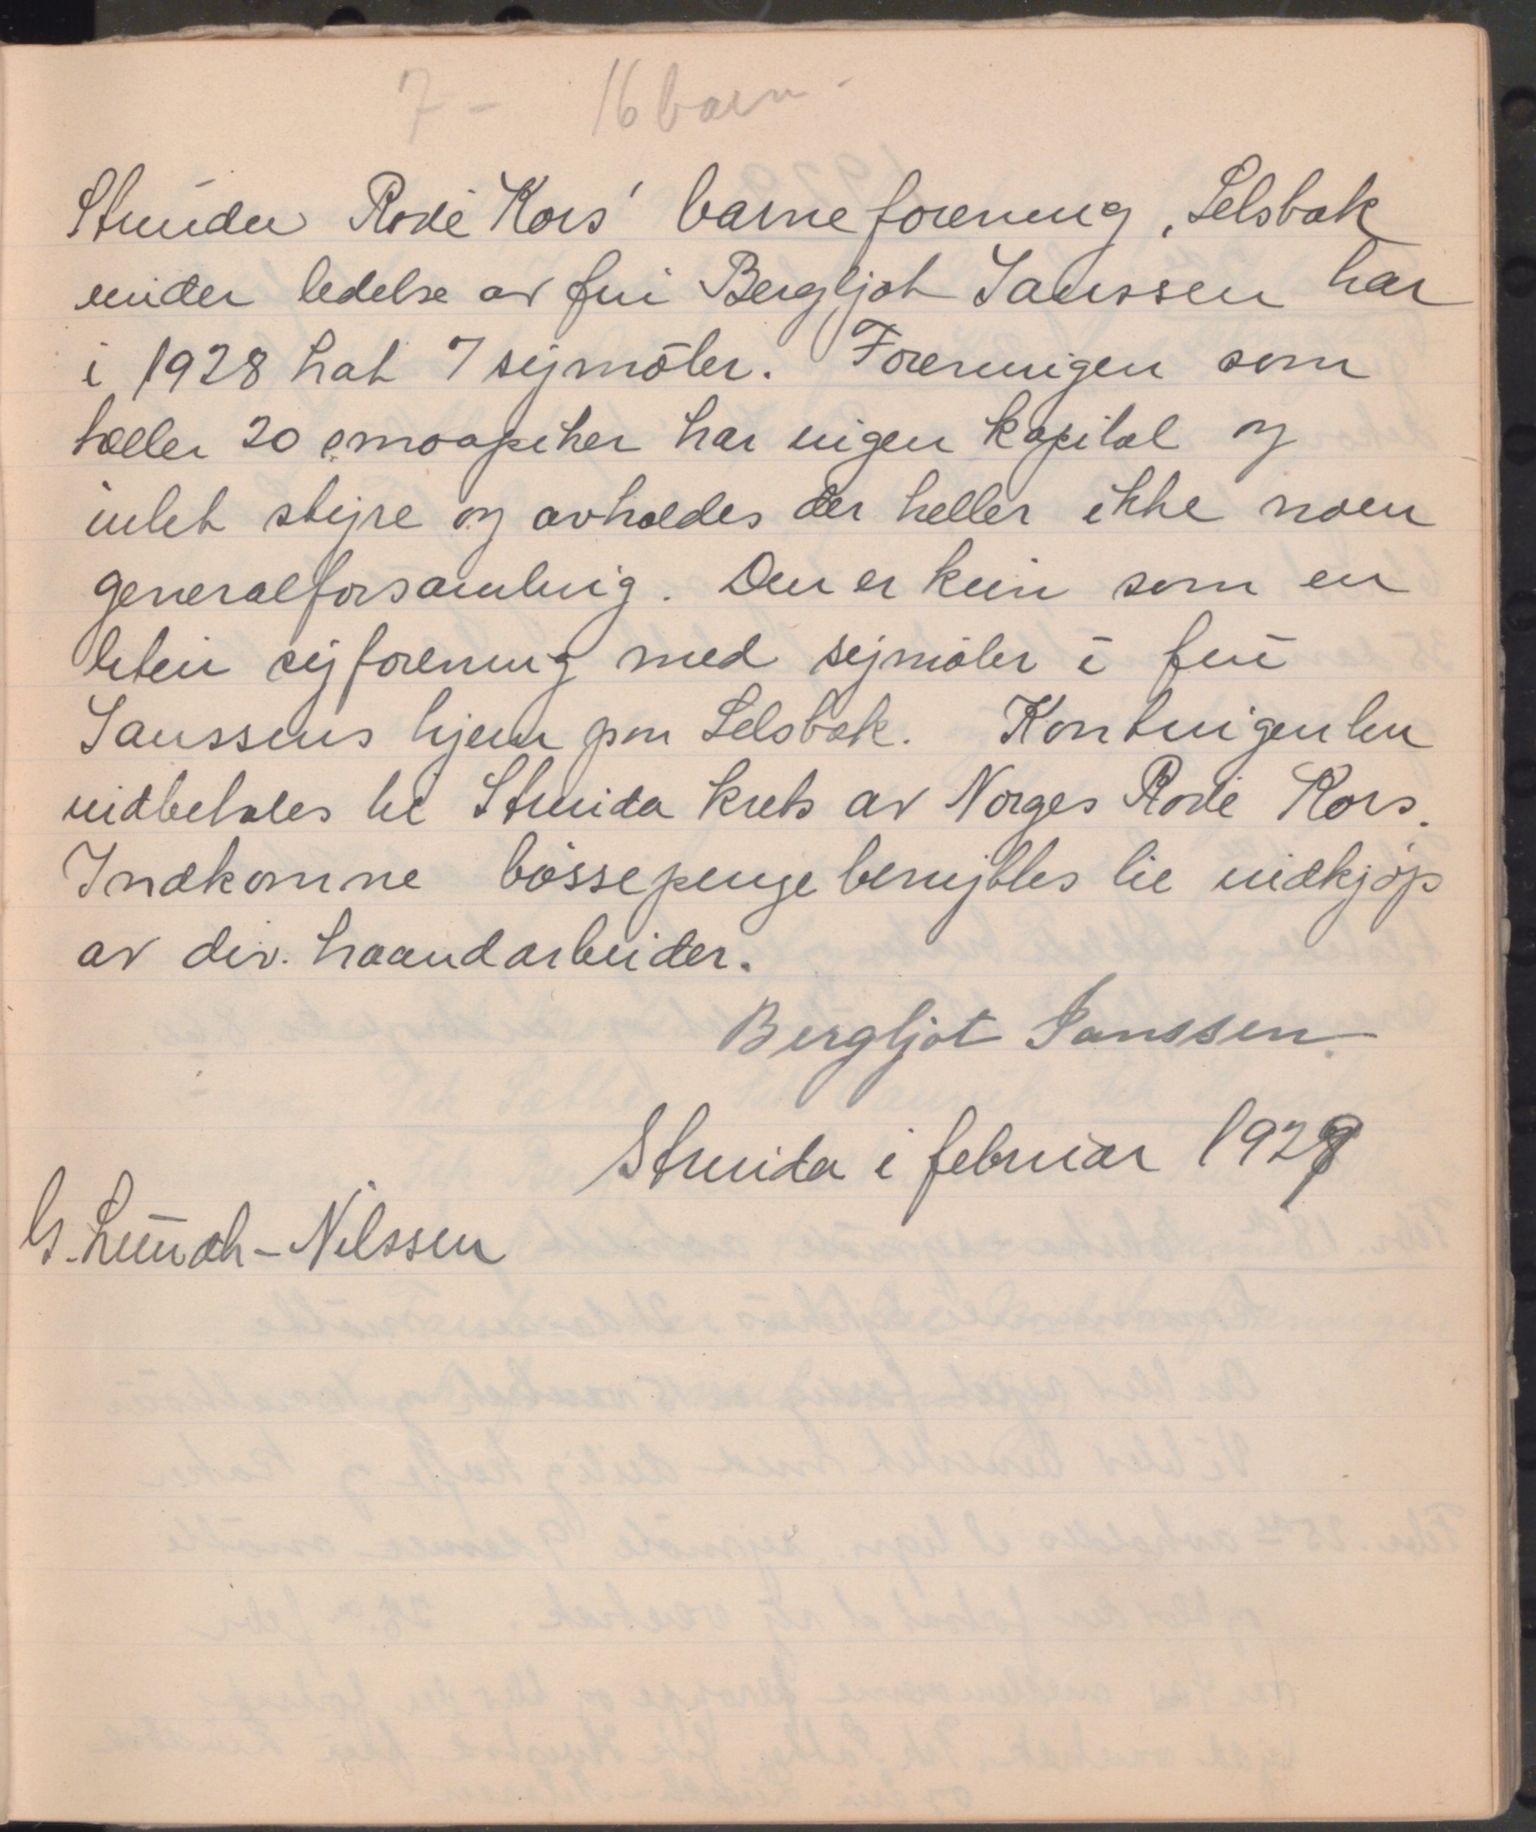 7 - 16 barn -
Strinden Röde Kors' barneforening, Selsbak
under ledelse av fru Bergljot Janssen har
i 1928 hat 7 symöter. Foreningen som
tæller 20 smaapiker har ingen kapital og
intet styre og avholdes der heller ikke noen
generalforsamling. Den er kun som en
liten syforening med symöter i fru
Janssens hjem paa Selsbak. Kontingenten
indbetales til Strinda kreds av Norges Röde Kors.
Indkomne bössepenge benyttes til indkjöp
av div. haandarbeider.
Bergljot Janssen
Strinda i februar 1929
G. Lünch-Nilssen